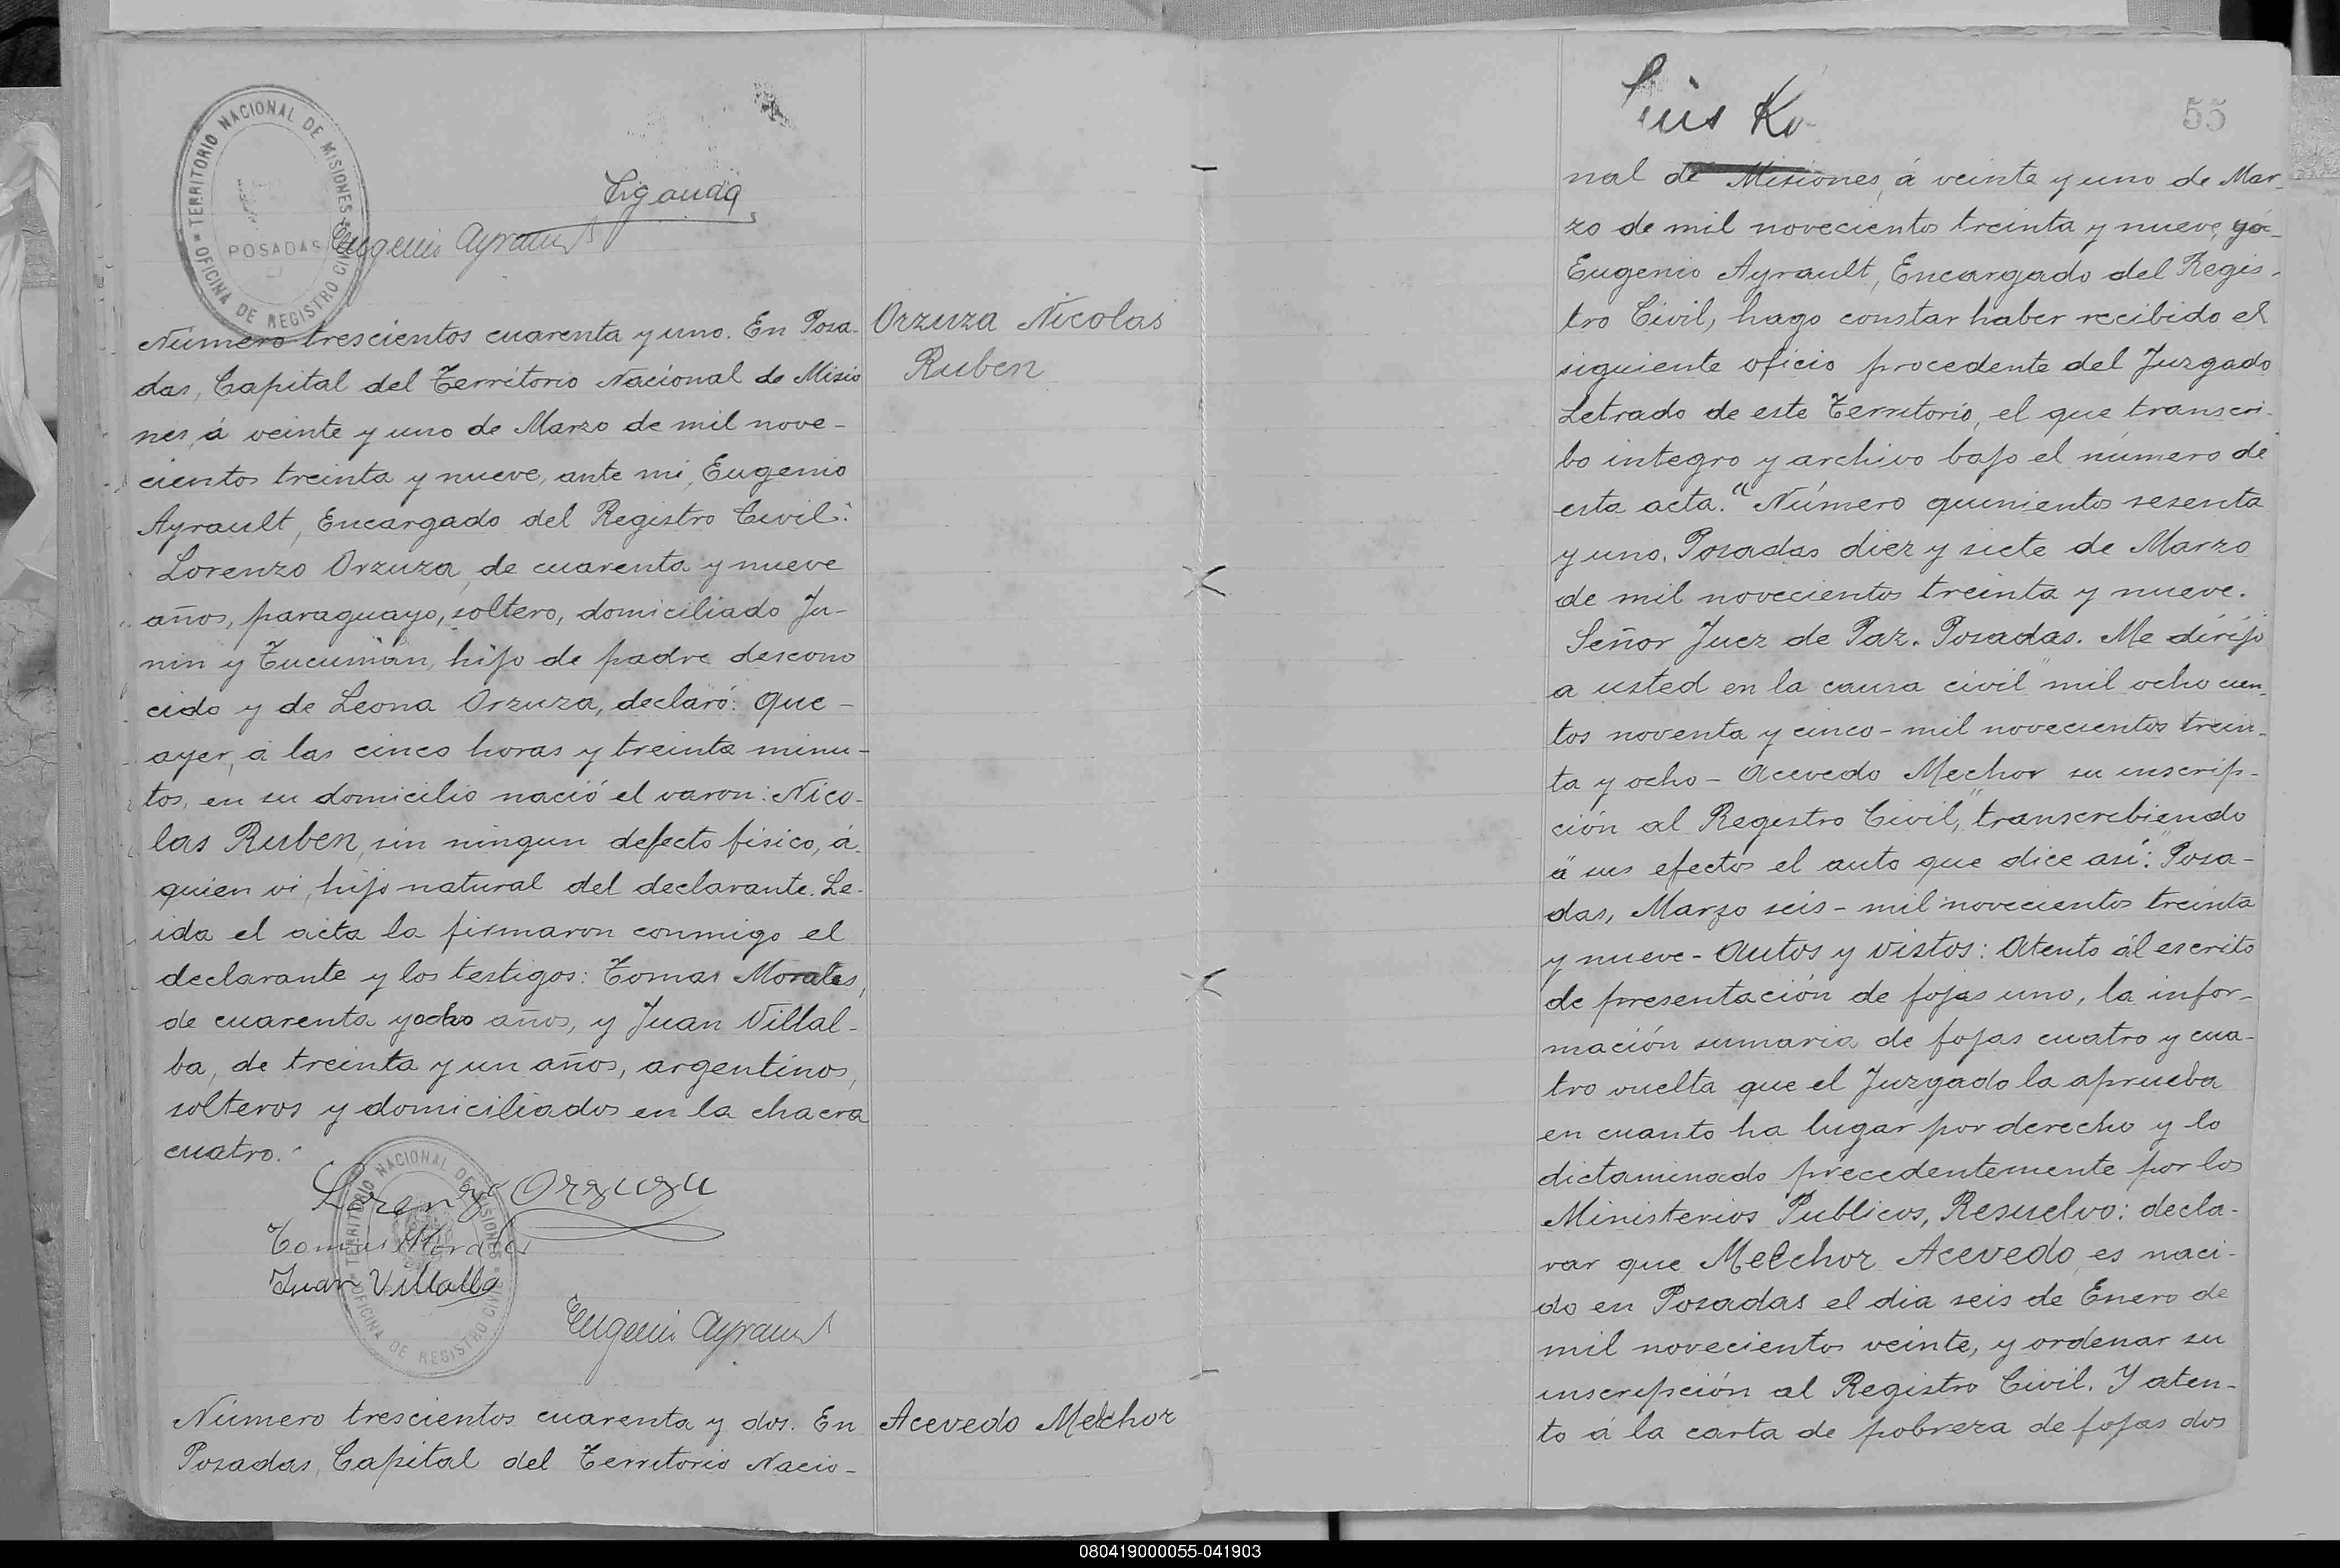 TERRITORIO NACIONAL DE MISIONES
POSADAS
OFICINA DE REGISTRO CIVIL
Eugenio Ayrault
Número trescientos cuarenta y uno. En Posa-
das, Capital del Territorio Nacional de Misio
nes, á veinte y uno de Marzo de mil nove-
cientos treinta y nueve, ante mi, Eugenio
Ayrault, Encargado del Registro Civil:
Lorenzo Orzuza, de cuarenta y nueve
años, paraguayo, soltero, domiciliado Ju-
nin y Tucumán, hijo de padre descono
cido y de Leona Orzuza, declaró: Que-
ayer, á las cinco horas y treinta minu-
tos, en su domicilio nació el varon: Nico-
las Ruben, sin ningun defecto fisico, á
quien vi, hijo natural del declarante. Le-
ida el acta la firmaron conmigo el
declarante y los testigos: Tomas Morales,
de cuarenta y ocho años, y Juan Villal-
ba, de treinta y un años, argentinos,
solteros y domiciliados en la chacra
cuatro.
Lorenzo Orzuza
Tomás Morales
Juan Villalba
TERRITORIO NACIONAL DE MISIONES
OFICINA DE REGISTRO CIVIL
Eugenio Ayrault
Número trescientos cuarenta y dos. En
Posadas, Capital del Territorio Nacio-
Orzuza Nicolas
Ruben
Acevedo Melchor
55
nal de Misiones, á veinte y uno de Mar-
zo de mil novecientos treinta y nueve, yo-
Eugenio Ayrault, Encargado del Regis-
tro Civil, hago constar haber recibido el
siguiente oficio procedente del Juzgado
Letrado de este Territorio, el que transcri-
bo integro y archivo bajo el número de
esta acta. "Número quinientos sesenta
y uno. Posadas diez y siete de Marzo
de mil novecientos treinta y nueve.
Señor Juez de Paz. Posadas. Me dirijo
a usted en la causa civil "mil ocho cien-
tos noventa y cinco - mil novecientos trein-
ta y ocho - Acevedo Mechor su inscrip-
ción al Registro Civil," transcrebiendo
á sus efectos el auto que dice así: "Posa-
das, Marzo seis - mil novecientos treinta
y nueve - Autos y vistos: Atento ál escrito
de presentación de fojas uno, la infor-
mación sumaria de fojas cuatro y cua-
tro vuelta que el Juzgado la aprueba
en cuanto ha lugar por derecho y lo
dictaminado precedentemente por los
Ministerios Publicos, Resuelvo: decla-
rar que Melchor Acevedo, es naci-
do en Posadas el dia seis de Enero de
mil novecientos veinte, y ordenar su
inscripción al Registro Civil. Y aten-
to á la carta de pobreza de fojas dos
080419000055-041903